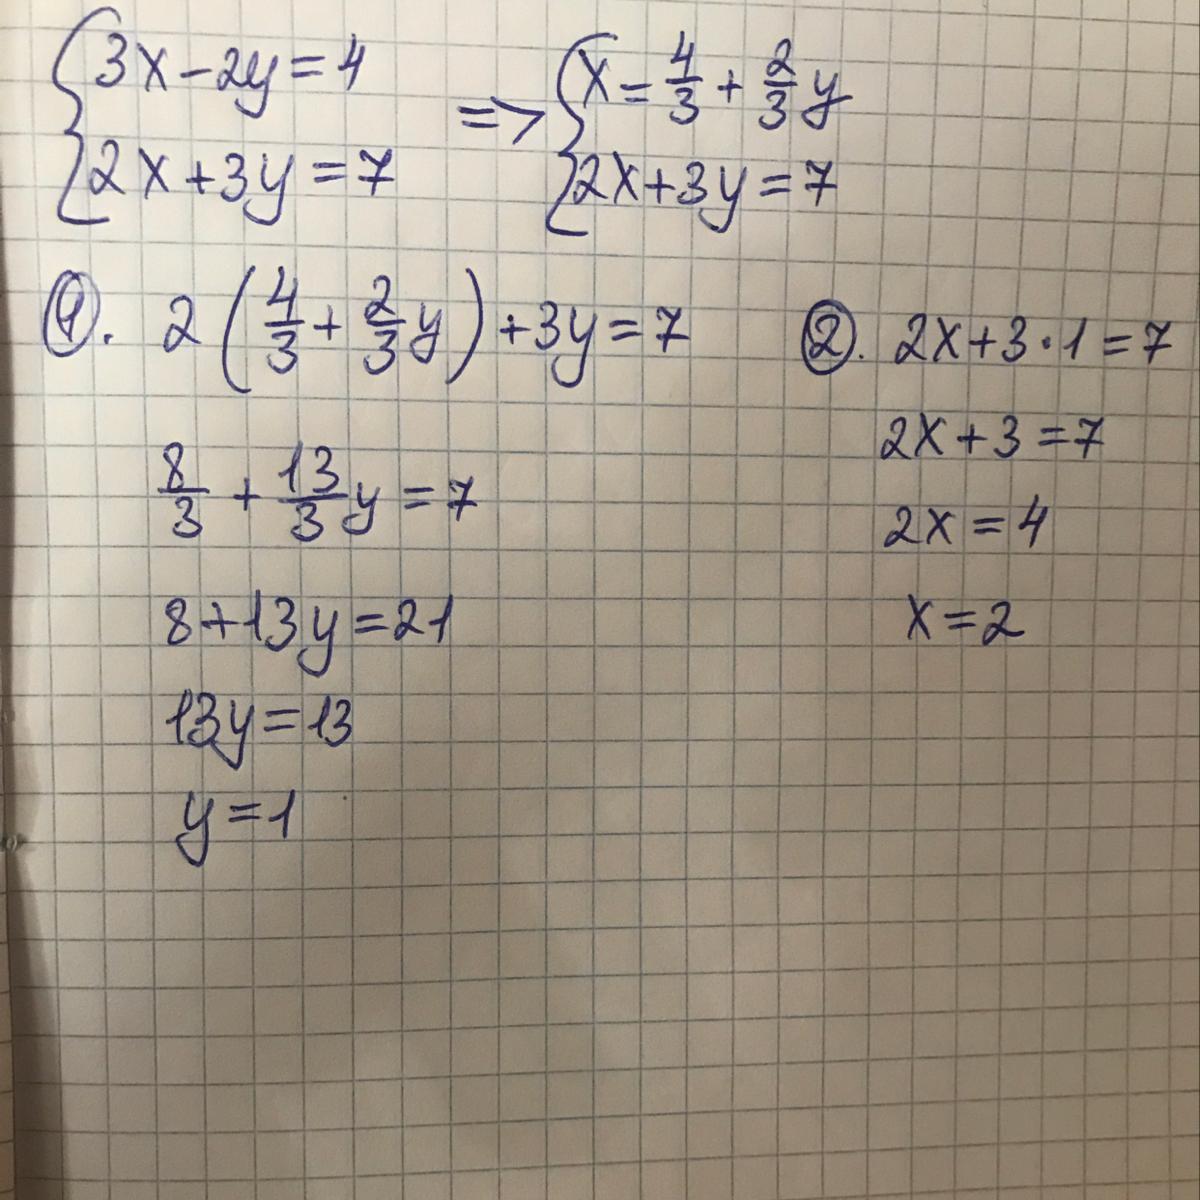 3x-2y=4 => x=4/3+2/3y
2x+3y=7 2x+3y=7
①. 2(4/3+2/3y)+3y=7
8/3+13/3y=7
8+13y=21
13y=13
y=1
②. 2x+3·1=7
2x+3=7
2x=4
x=2